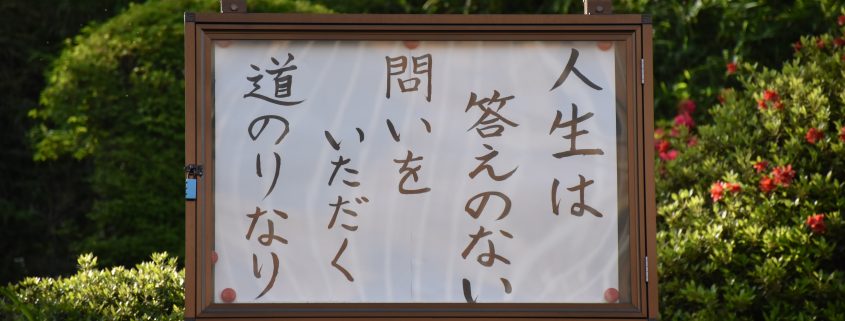 人生は
答えのない
問いを
いただく
道のりなり